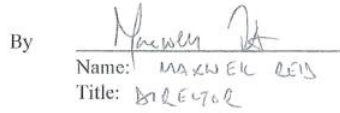 By
Name: MAXWELL REID
Title: DIRECTOR